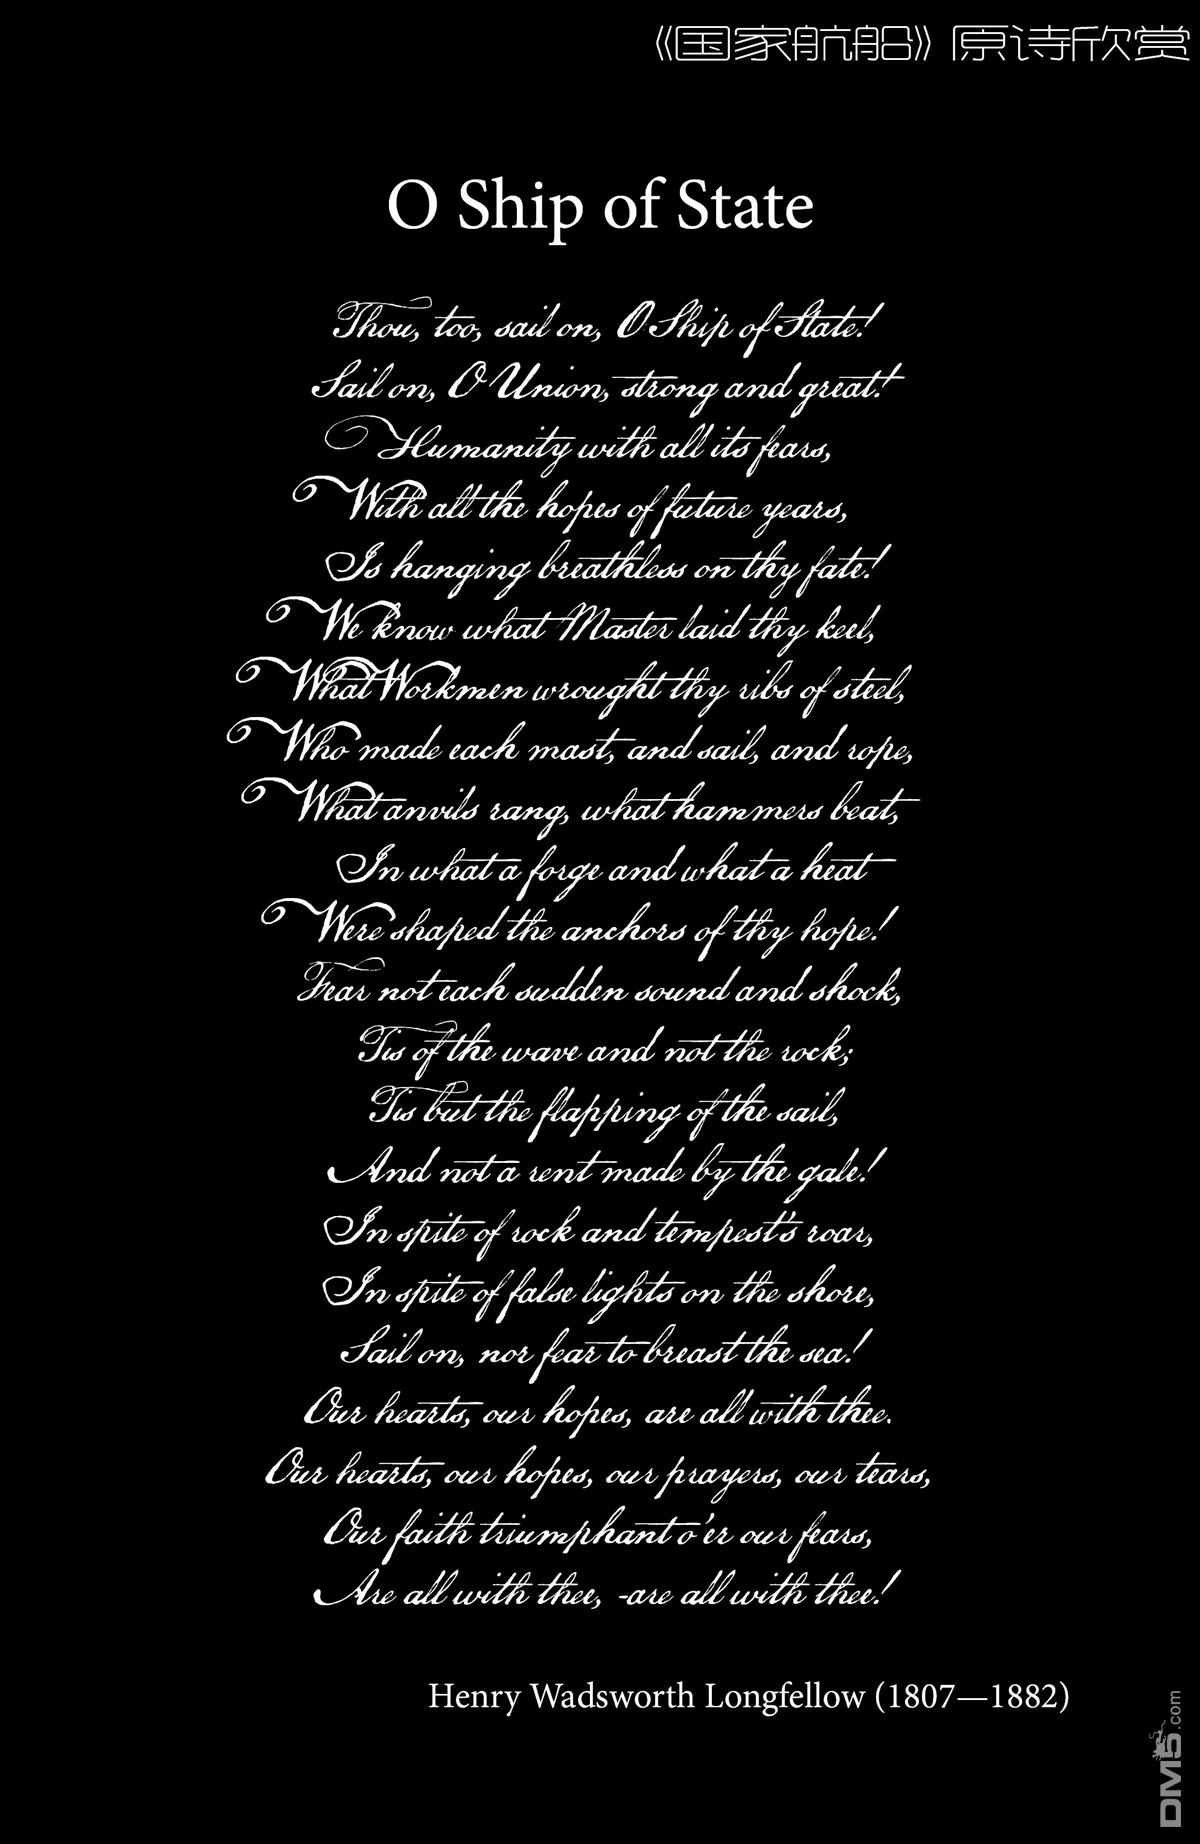 《国家航船》原诗欣赏
O Ship of State
Thou, too, sail on, O Ship of State!
Sail on, O Union, strong and great!
Humanity with all its fears,
With all the hopes of future years,
Is hanging breathless on thy fate!
We know what Master laid thy keel,
What Workmen wrought thy ribs of steel,
Who made each mast, and sail, and rope,
What anvils rang, what hammers beat,
In what a forge and what a heat
Were shaped the anchors of thy hope!
Fear not each sudden sound and shock,
Tis of the wave and not the rock;
Tis but the flapping of the sail,
And not a rent made by the gale!
In spite of rock and tempest's roar,
In spite of false lights on the shore,
Sail on, nor fear to breast the sea!
Our hearts, our hopes, are all with thee.
Our hearts, our hopes, our prayers, our tears,
Our faith triumphant o'er our fears,
Are all with thee, -are all with thee!
Henry Wadsworth Longfellow (1807—1882)
DM5.com